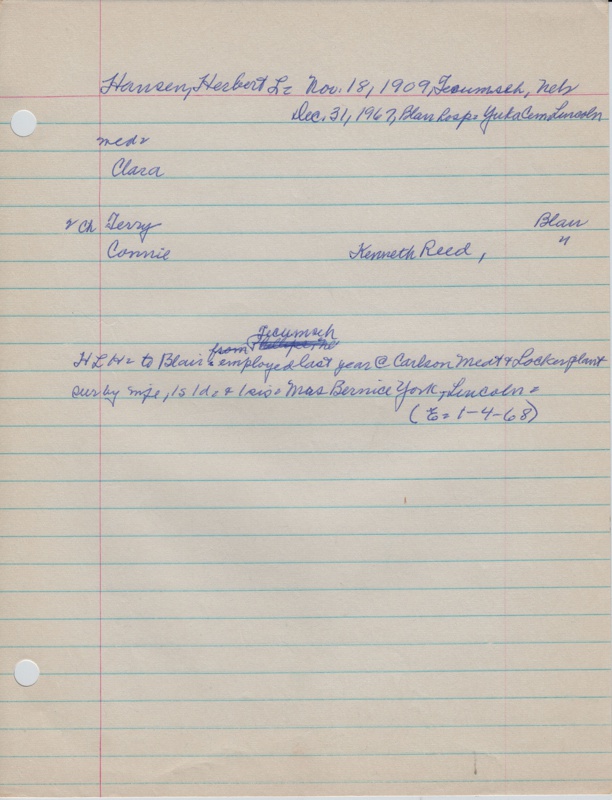 Hansen, Herbert L = Nov. 18, 1909, Tecumseh, Neb
Dec. 31, 1967, Blair hosp = Cem Lincoln
med =
Clara
2 ch Terry Blair
Connie Kenneth Reed, "
Tecumseh
from
H L H = to Blair & employed last year @ Carlson Meat & Locker plant
sur by wife, 1s 1d. & 1 sis = Mrs Bernice York, Lincoln =
(E = 1-4-68)